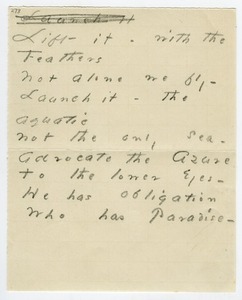 Launch it
Lift - it - with the
Feathers
Not alone we fly -
Launch it - the
aquatic
not the only sea -
advocate the Azure
to the lower Eyes -
He has obligation
Who has Paradise -